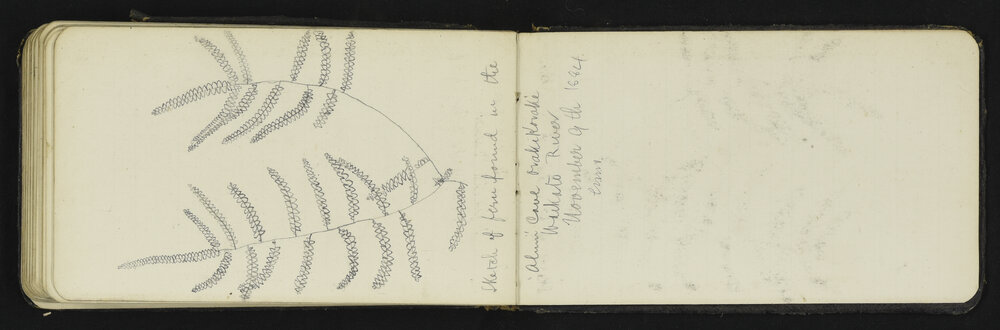 Sketch of fern found in the
Alum Cave Orakikorako
Waikato River
November 9th 1884.